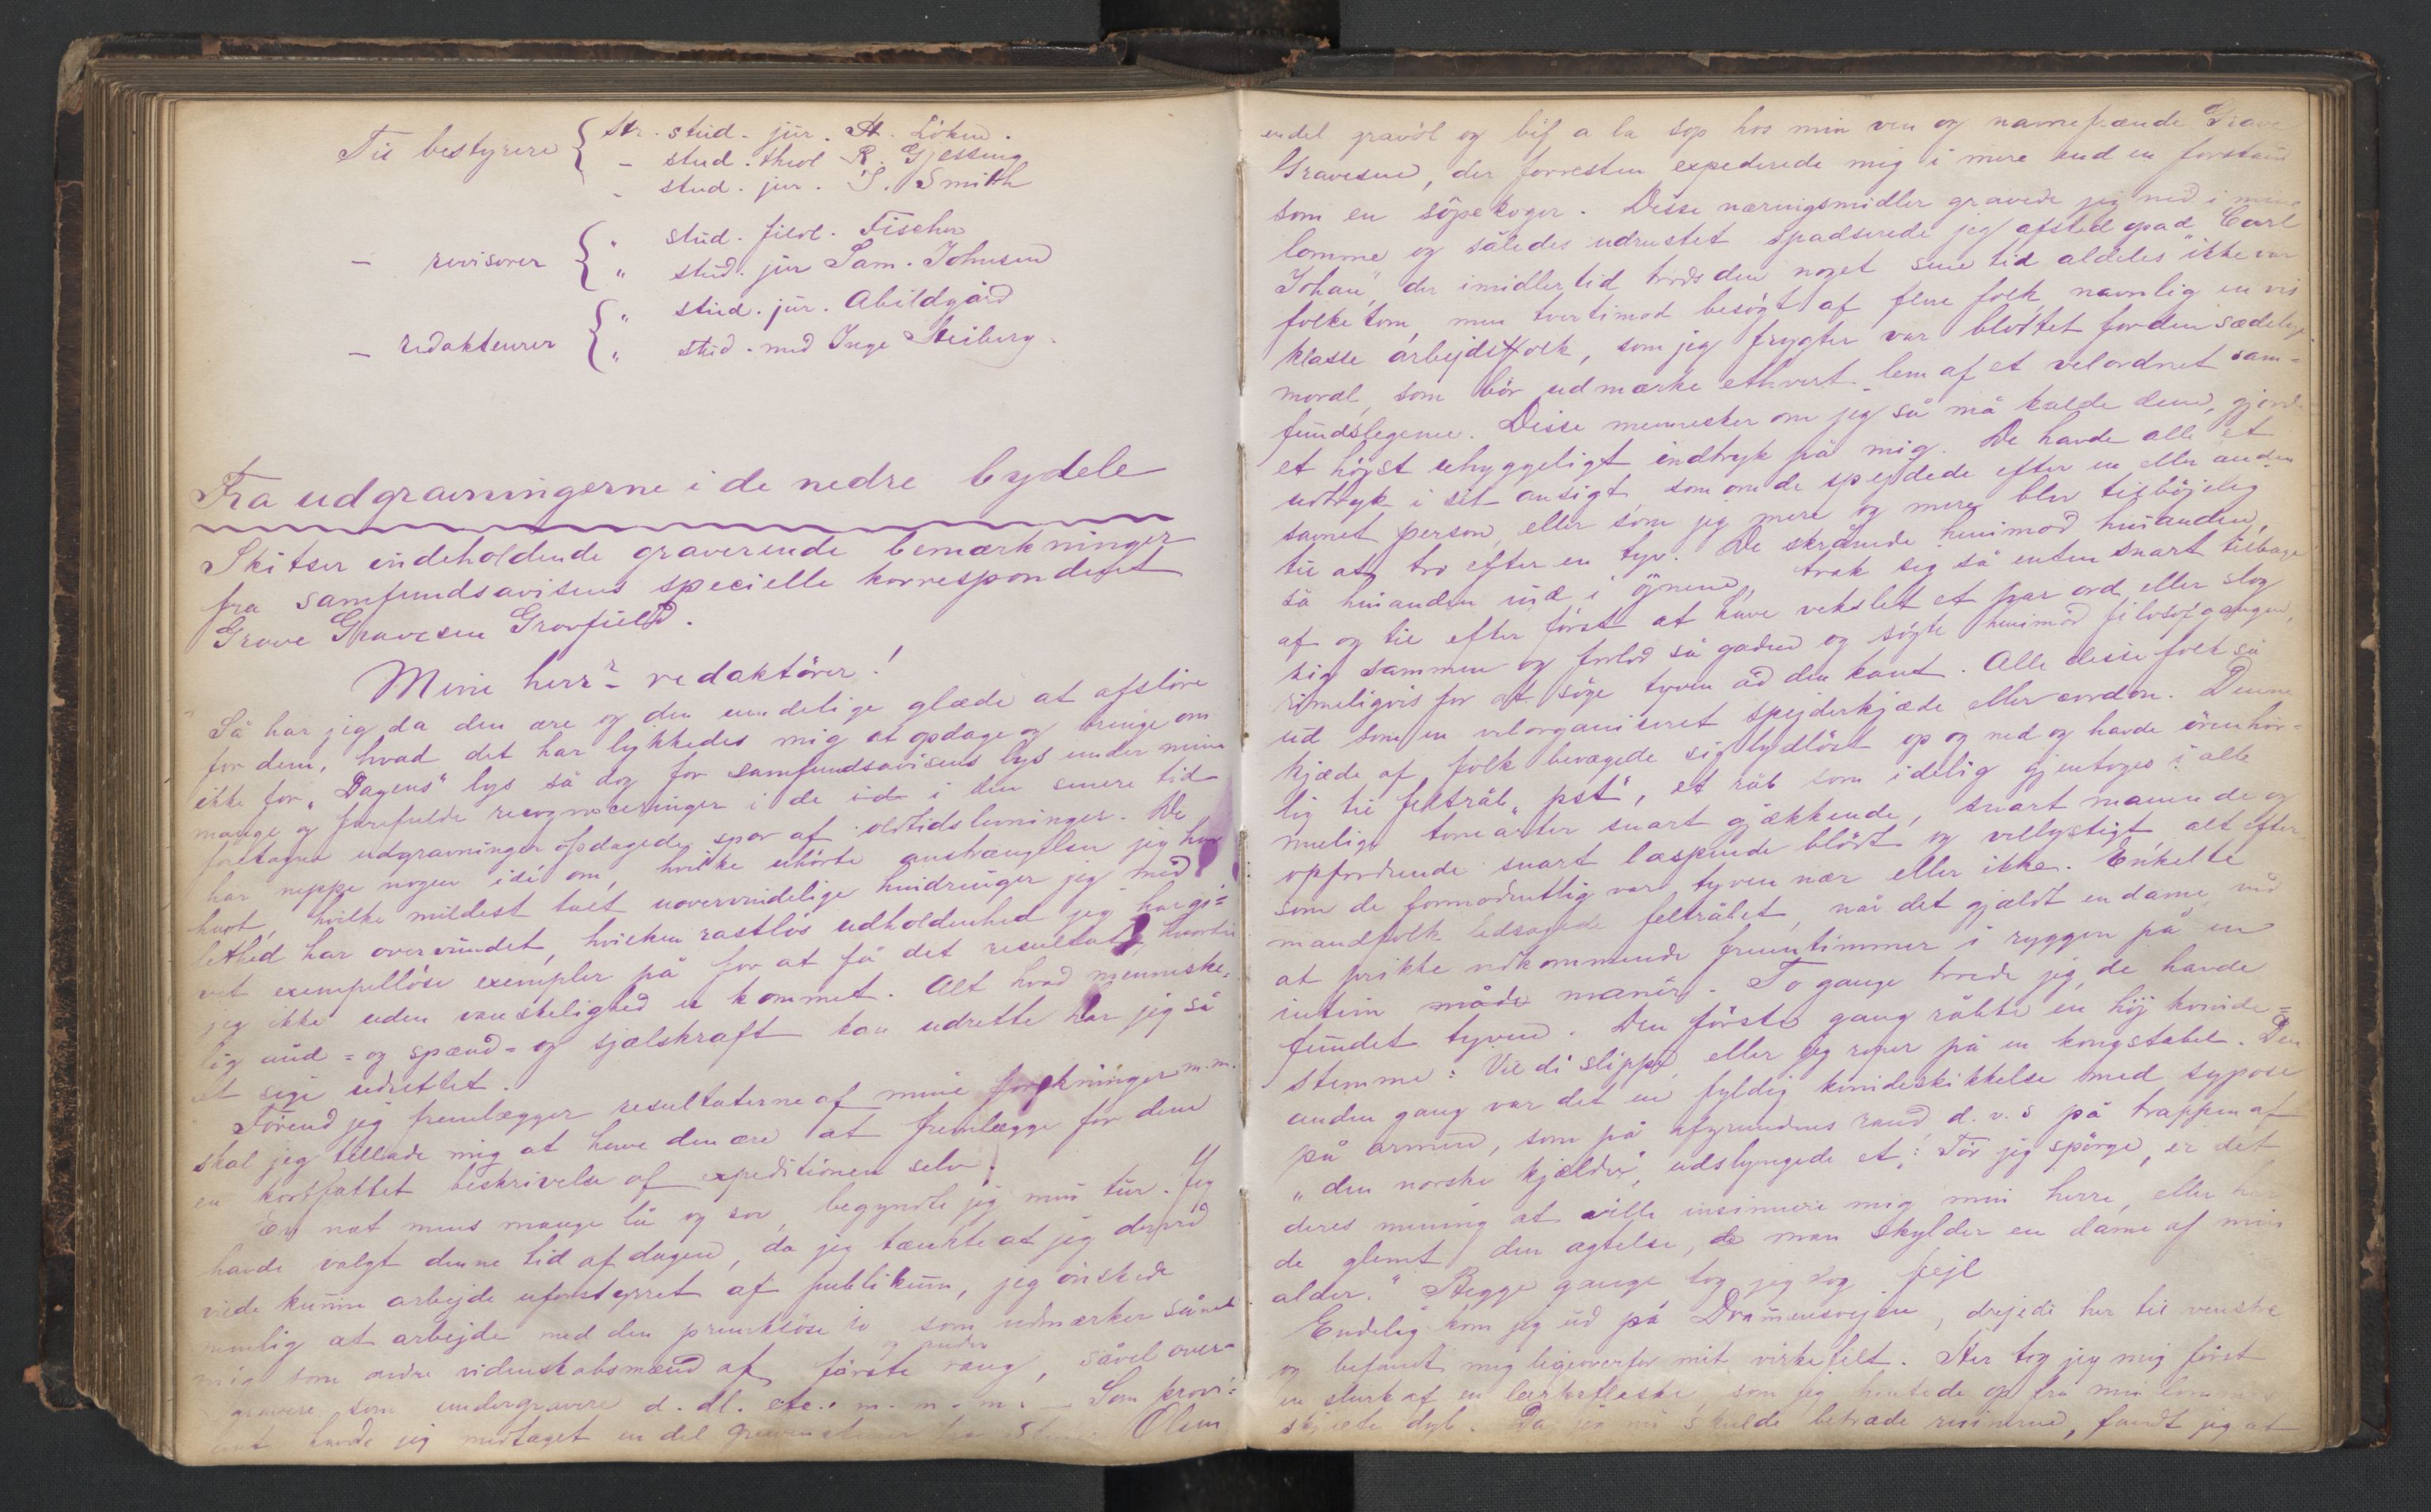 Til bestyrere { Hr. stud. jur. H. Löken.
– stud. theol R. Gjessing
– stud. jur. S. Smith
– revisorer { " stud. filol. Fischer
" stud. jur Sam. Johnsen
– redakteurer { " stud. jur. Abildgård
" stud. med Inge Steiberg.
Fra udgravningerne i de nedre bydele
Skitser indeholdende graverende bemærkninger
fra samfundsavisens specielle korrespondent
Grave Gravesen Gravfield.
Mine herr? – redaktörer!
Så har jeg da den ære og den uendelige glæde at afslöre
for dem, hvad det har lykkedes mig at opdage og bringe om
ikke for "Dagens" lys så dog for samfundsavisens lys under mine
mange og farefulde recognosceringer i de i de i den senere tid
foretagne udgravninger opdagede spor af oldtidslevninger. De
har neppe nogen idé om, hvilke uhörte anstrængelser jeg har
havt, hvilke mildest talt uovervindelige hindringer jeg med
lethed har overvundet, hvilken rastlös udholdenhed jeg har gi=
vet exempellöse exempler på for at få det resultat, hvortil
jeg ikke uden vanskelighed er kommet. Alt hvad menneske=
lig ånd= og spænd= og sjælskraft kan udrette har jeg så
at sige udrettet.
Förend jeg fremlægger resultaterne af mine forskninger m.m.
skal jeg tillade mig at have den ære at fremlægge for dem
en kortfattet beskrivelse af expeditionen selv.
En nat mens mange lå og sov, begyndte jeg min tur. Jeg
havde valgt denne tid af dagen, da jeg tænkte at jeg derved
vilde kunne arbejde uforstyrret af publikum, jeg önskede
nemlig at arbejde med den prunklöse ro som udmærker såvel
mig som andre videnskabsmænd af förste og anden rang, såvel over=
gravere som undergravere d. dl. etc. m. m. m. – Som provi=
ant havde jeg medtaget en del Olsen
endel gravöl og bif a la sop hos min ven og navnefrænde Grave
Gravesen, der forresten expederede mig i mere end en forstand
som en söpekoger. Disse næringsmidler gravede jeg ned i min
lomme og således udrustet spadserede jeg afsted opad "Carl
Johan", der imidlertid trods den noget sene tid aldeles ikke var
folketom, men tvertimod besögt af flere folk navnlig en vis
klasse arbejdsfolk, som jeg frygter var blottet for den sædelige
moral, som bör udmærke ethvert lem af et velordnet sam=
fundslegeme. Disse mennesker om jeg så må kalde dem, gjorde
et höjst uhyggeligt indtryk på mig. De havde alle et
udtryk i sit ansigt, som om de spejdede efter en eller anden
savnet person, eller som jeg mere og mere blev tilböjelig
til at tro efter en tyv. De skrånede henimod hinanden,
så hinanden ind i öjnene, trak sig så enten snart tilbage
af og til efter först at have vekslet et par ord eller slog
sig sammen og forlod så gaden og sögte henimod filosofgangen,
rimeligvis for at söge tyven ad den kant. Alle disse folk så
ud som en velorganiseret spejderkjæde eller cordon. Denne
kjæde af folk bevægede sig lydlöst op og ned og havde örenhör=
lig til feltråb "pst", et råb som idelig gjentoges i alle
mulige tonearter snart gjækkende, snart manende og
opfordrende snart læspende blödt og vellystigt alt efter
som de formodentlig var tyven nær eller ikke. Enkelte
mandfolk ledsagede feltråbet, når det gjældt en dame, ved
at prikke vedkommende fruentimmer i ryggen på en
intim måde manér. To gange troede jeg, de havde
fundet tyven. Den förste gang råbte en höj kvinde=
stemme: Vil di slippe, eller jeg roper på en kongstabel. Den
anden gang var det en fyldig kvindeskikkelse med sypose
på armen, som på afgrundens rand d. v. s på trappen af
"den norske kjælder", udslyngede et: Tör jeg spörge, er det
deres mening at ville insinuere mig min herre, eller har
de glemt den agtelse, de man skylder en dame af min
alder." Begge gange tog jeg dog fejl
Endelig kom jeg ud på Drammensvejen, drejede her til venstre
og befandt mig ligeoverfor mit virkefelt. Her tog jeg mig först
en slurk af en lærkeflaske, som jeg hentede op fra min lommes
dyb. Da jeg nu skulde betræde ruinerne, fandt jeg at